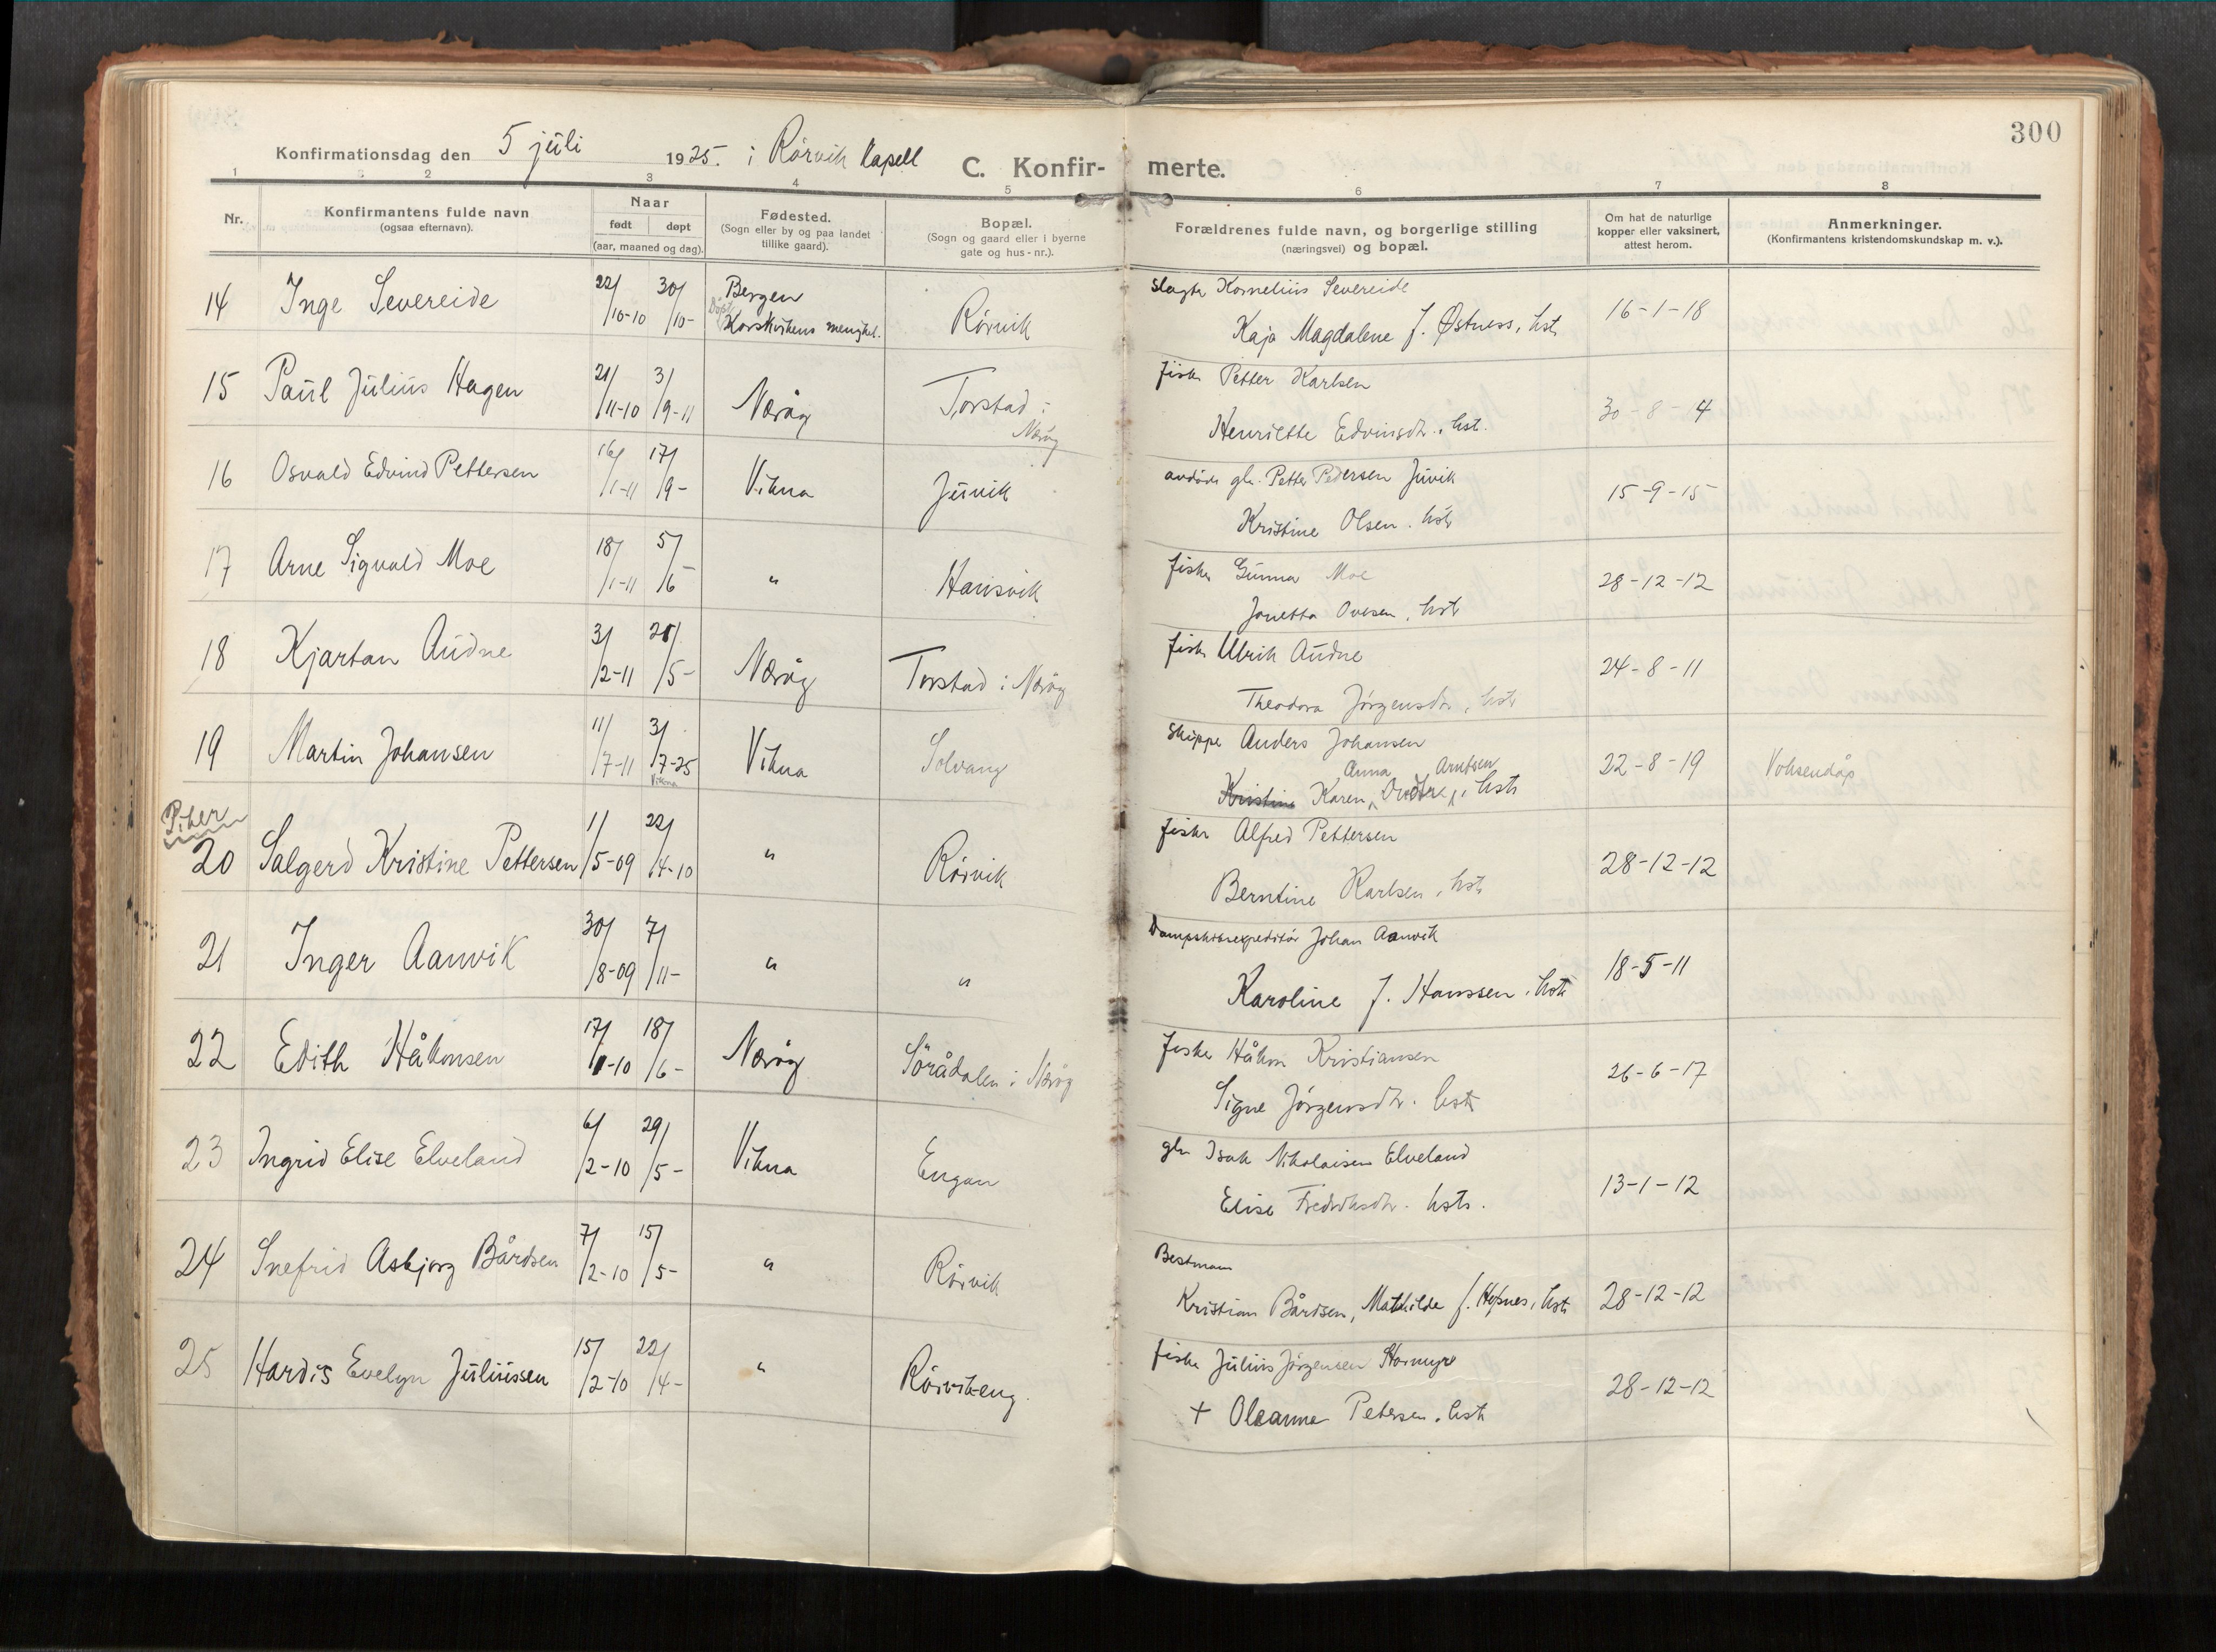 300
Konfirmationsdag den 5 júli 1925. i Rörvik Kapell C. Konfir- merte.
1 2 3 4 5 6 7 8
Nr.
Konfirmantens fulde navn
(ogsaa efternavn).
Naar
født døpt
(aar, maaned og dag).
Fødested.
(Sogn eller by og paa landet
tillike gaard).
Bopæl.
(Sogn og gaard eller i byerne
gate og hus-nr.).
Forældrenes fulde navn, og borgerlige stilling
(næringsvei) og bopæl.
Om hat de naturlige
kopper eller vaksinert,
attest herom.
Anmerkninger.
(Konfirmantens kristendomskundskap m. v.).
14 Inge Severeide 22/10-10 30/10- Bergen
Döpt Korskirkens menighet. Rörvik
Slagter Kornelius Severeide
Kaja Magdalene f. Østness, hstr 16-1-18
15 Paul Júliús Hagen 21/11-10 3/9-11 Næröy Torstad i
Næröy
fisker Petter Karlsen
Henriette Edvinsdtr., hst. 30-8-4
16 Osvald Edvind Pettersen 16/1-11 17/9- Vikna Júvik
avdöde gbr. Petter Pedersen Júvik
Kristine Olsen. hstr 15-9-15
17 Arne Sigvald Moe 18/1-11 5/6- " Hansvik
fisker Gunnar Moe
Jonetta Ovesen, hstr 28-12-12
18 Kjartan Aúdne 3/2-11 25/5- Næröy Torstad i Næröy
fisker Ulrik Aúdne
Theodora Jörgensdtr, hstr 24-8-11
19 Martin Johansen 11/7-11 3/7-25
Vikna Vikna Solvang
Skipper Anders Johansen
Anna Arntsen
Kristine Karen, hstr 22-8-19 Voksendåp
Piker
20 Salgerd Kristine Pettersen 1/5-09 22/4-10 " Rörvik
fisker Alfred Pettersen
Berntine Karlsen, hstr 28-12-12
21 Inger Aanvik 30/8-09 7/11- " "
Dampskibsexpeditör Johan Aanvik
Karoline f. Hanssen, hstr 18-5-11
22 Edith Håkonsen 17/1-10 18/6- Næröy Sörådalen i Næröy
fisker Håkon Kristiansen
Signe Jörgensdtr. hstr 26-6-17
23 Ingrid Elise Elveland 6/2-10 29/5- Vikna Engan
gbr Isak Nikolaisen Elveland
Elise Fredriksdtr. hstr. 13-1-12
24 Snefrid Asbjorg Bårdsen 7/2-10 15/5- " Rörvik
Bestmann
Kristian Bårdsen, Mathilde f. Hofsnes, hstr 28-12-12
25 Hardis Evelyn Júliússen 15/2-10 22/4- " Rörvikeng.
fisker Júliús Jörgensen Stormyre
+ Oleanna Petersen, hstr 28-12-12